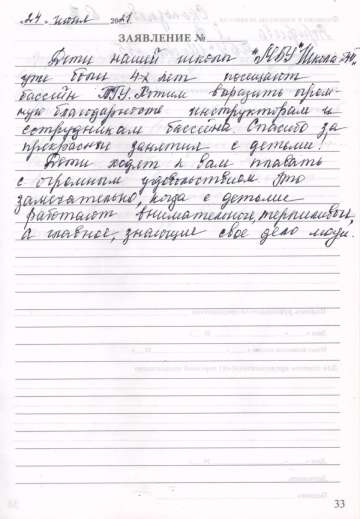 24 июня 2021
ЗАЯВЛЕНИЕ №
Дети нашей школы "КВУ" Школа
уже более 4-х лет посещают
бассейн ТГУ. Хотим выразить огром-
ную благодарность инструкторам и
сотрудникам бассейна. Спасибо за
прекрасные занятия с детьми!
Дети ходят к Вам плавать
с огромным удовольствием. Это
замечательно, когда с детьми
работают внимательные, терпеливые,
а главное, знающие свое дело люди.
33